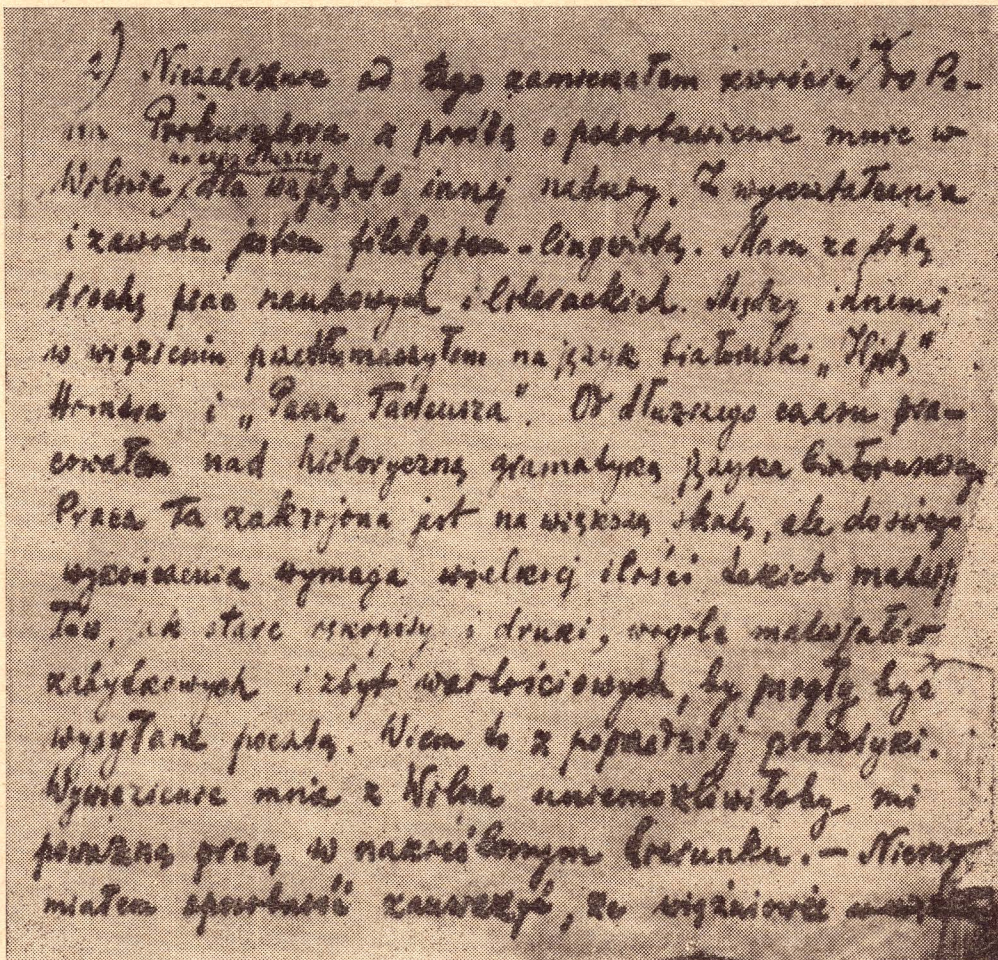 2) Niezależnie od tego zamierzałem zwrócić się do Pa-
na Prokuratora z prośbą o pozostawienie mnie w
Wilnie dla względów innej natury. Z wykształcenia
i zawodu jestem filologiem-lingwistą. Mam za sobą
trochę prac naukowych i literackich. Między innemi
w więzieniu przetłumaczyłem na język białoruski „Iljadę"
Homera i „Pana Tadeusza". Od dłuższego czasu pra-
cowałem nad historyczną gramatyką języka białoruskiego
Praca ta zakrojona jest na większą skalę, ale do swego
wykończenia wymaga wielkiej ilości takich materja-
łów, jak stare rękopisy i druki, wogóle materjałów
zabytkowych i zbyt wartościowych, by mogły być
wysyłane pocztą. Wiem to z poprzedniej praktyki.
Wywiezienie mnie z Wilna uniemożliwiłoby mi
poważną pracę w nakreślonym kierunku. — Nieraz
miałem sposobność zauważyć, że więźniowie